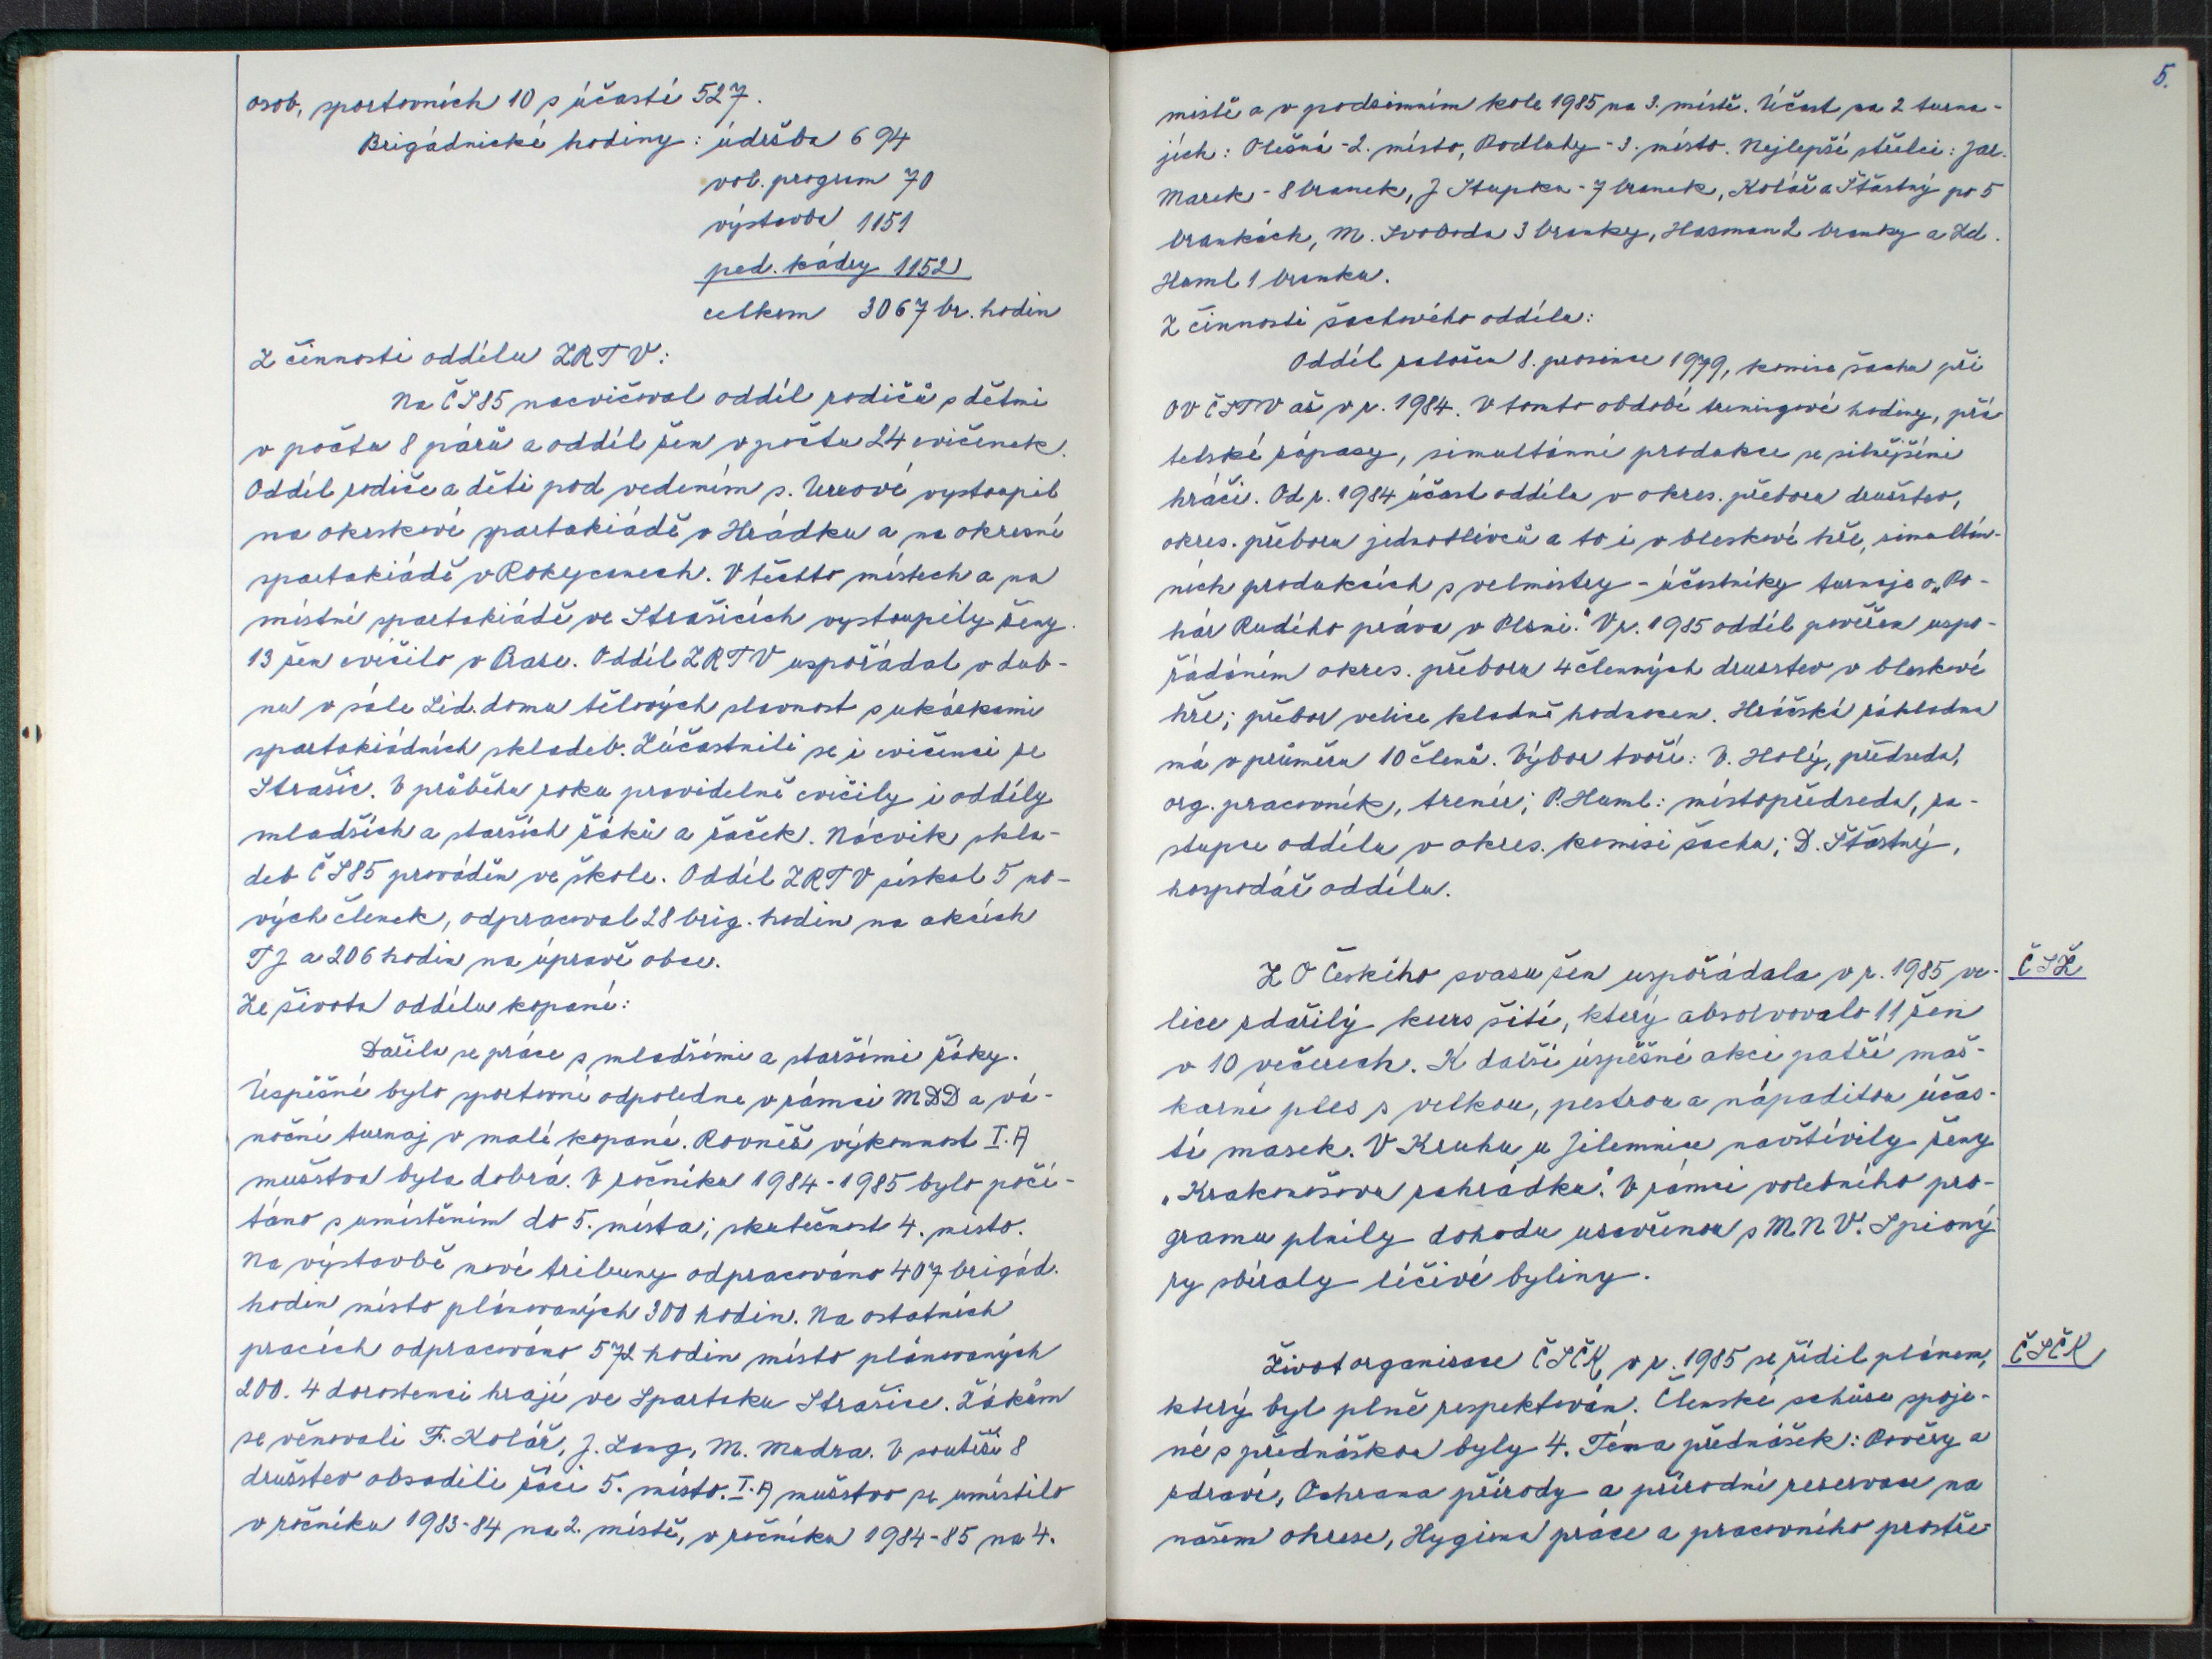 osob, sportovních 10 s účastí 527.
Brigádnické hodiny: údržba 694
vol. program 70
výstavba 1151
ped. kádry 1152
celkem 3067 br. hodin
Z činnosti oddílu ZRTV:
Na ČS85 nacvičoval oddíl rodičů s dětmi
v počtu 8 párů a oddíl žen v počtu 24 cvičenek.
Oddíl rodiče a děti pod vedením s. Urxové vystoupil
na okrskové spartakiádě v Hrádku a na okresní
spartakiádě v Rokycanech. V těchto místech a na
místní spartakiádě ve Strašicích vystoupily ženy.
13 žen cvičilo v Praze. Oddíl ZRTV uspořádal v dub-
nu v sále Lid. domu tělových. slavnost s ukázkami
spartakiádních skladeb. Zúčastnili se i cvičenci ze
Strašic. V průběhu roku pravidelně cvičily i oddíly
mladších a starších žáků a žaček. Nácvik skla-
deb ČS85 prováděn ve škole. Oddíl ZRTV získal 5 no-
vých členek, odpracoval 28 brig. hodin na akcích
TJ a 206 hodin na úpravě obce.
Ze života oddílu kopané:
Dařila se práce s mladšími a staršími žáky.
Úspěšné bylo sportovní odpoledne v rámci MDD a vá-
noční turnaj v malé kopané. Rovněž výkonnost I. A
mužstva byla dobrá. V ročníku 1984-1985 bylo počí-
táno s umístěním do 5. místa; skutečnost 4. místo.
Na výstavbě nové tribuny odpracováno 407 brigád.
hodin místo plánovaných 300 hodin. Na ostatních
pracích odpracováno 572 hodin místo plánovaných
200. 4 dorostenci hrají ve Spartaku Strašice. Žákům
se věnovali F. Kolář, J. Lang, M. Mudra. V soutěži 8
družstev obsadili žáci 5. místo. I. A mužstvo se umístilo
v ročníku 1983-84 na 2. místě, v ročníku 1984-85 na 4.
5.
místě a v podzimním kole 1985 na 3. místě. Účast na 2 turna-
jích: Olešná - 2. místo, Podluhy - 3. místo. Nejlepší střelci: Jar.
Marek - 8 branek, J Stupka - 7 branek, Kolář a Šťastný po 5
brankách, M. Svoboda 3 branky, Hasman 2 branky a Zd.
Huml 1 branku.
Z činnosti šachového oddílu:
Oddíl založen 8. prosince 1979, komise šachu při
OV ČSTV až v r. 1984. V tomto období treningové hodiny, přá
telské zápasy, simultánní produkce se silnějšími
hráči. Od r. 1984 účast oddílu v okres. přeboru družstev,
okres. přeboru jednotlivců a to i v bleskové hře, simultán-
ních produkcích s velmistry - účastníky turnaje o „Po-
hár Rudého práva v Plzni." V r. 1985 oddíl pověřen uspo-
řádáním okres. přeboru 4členných družstev v bleskové
hře; přebor velice kladně hodnocen. Hráčská základna
má v průměru 10 členů. Výbor tvoří: V. Holý, předseda,
org. pracovník, trenér; P. Huml: místopředseda, zá-
stupce oddílu v okres. komisi šachu; D. Šťastný,
hospodář oddílu.
ZO Českého svazu žen uspořádala v r. 1985 ve-
ČSŽ
lice zdařilý kurs šití, který absolvovalo 11 žen
v 10 večerech. K další úspěšné akci patří maš-
karní ples s velkou, pestrou a nápaditou účas-
tí masek. V Kruhu u Jilemnice navštívily ženy
„Krakonošovu zahrádku". V rámci volebního pro-
gramu plnily dohodu uzavřenou s MNV. S pioný
ry sbíraly léčivé byliny.
Život organizace ČSČK v r. 1985 se řídil plánem,
ČSČK
který byl plně respektován. Členské schůze spoje-
né s přednáškou byly 4. Téma přednášek: Pověry a
zdraví, Ochrana přírody a přírodní rezervace na
našem okrese, Hygiena práce a pracovního prostře-